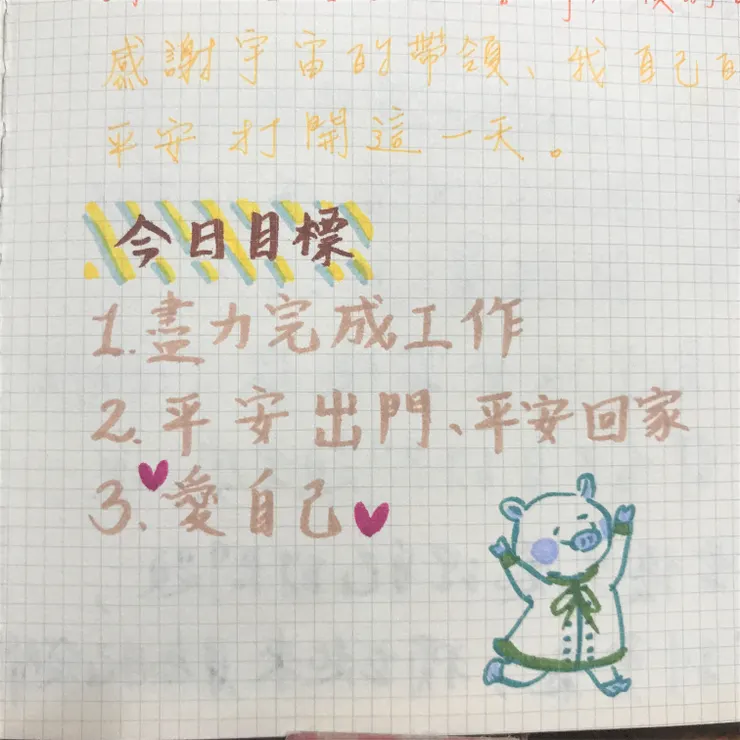 感謝宇宙的帶領、我自己
平安打開這一天。
今日目標
1.盡力完成工作
2.平安出門、平安回家
3.愛自己